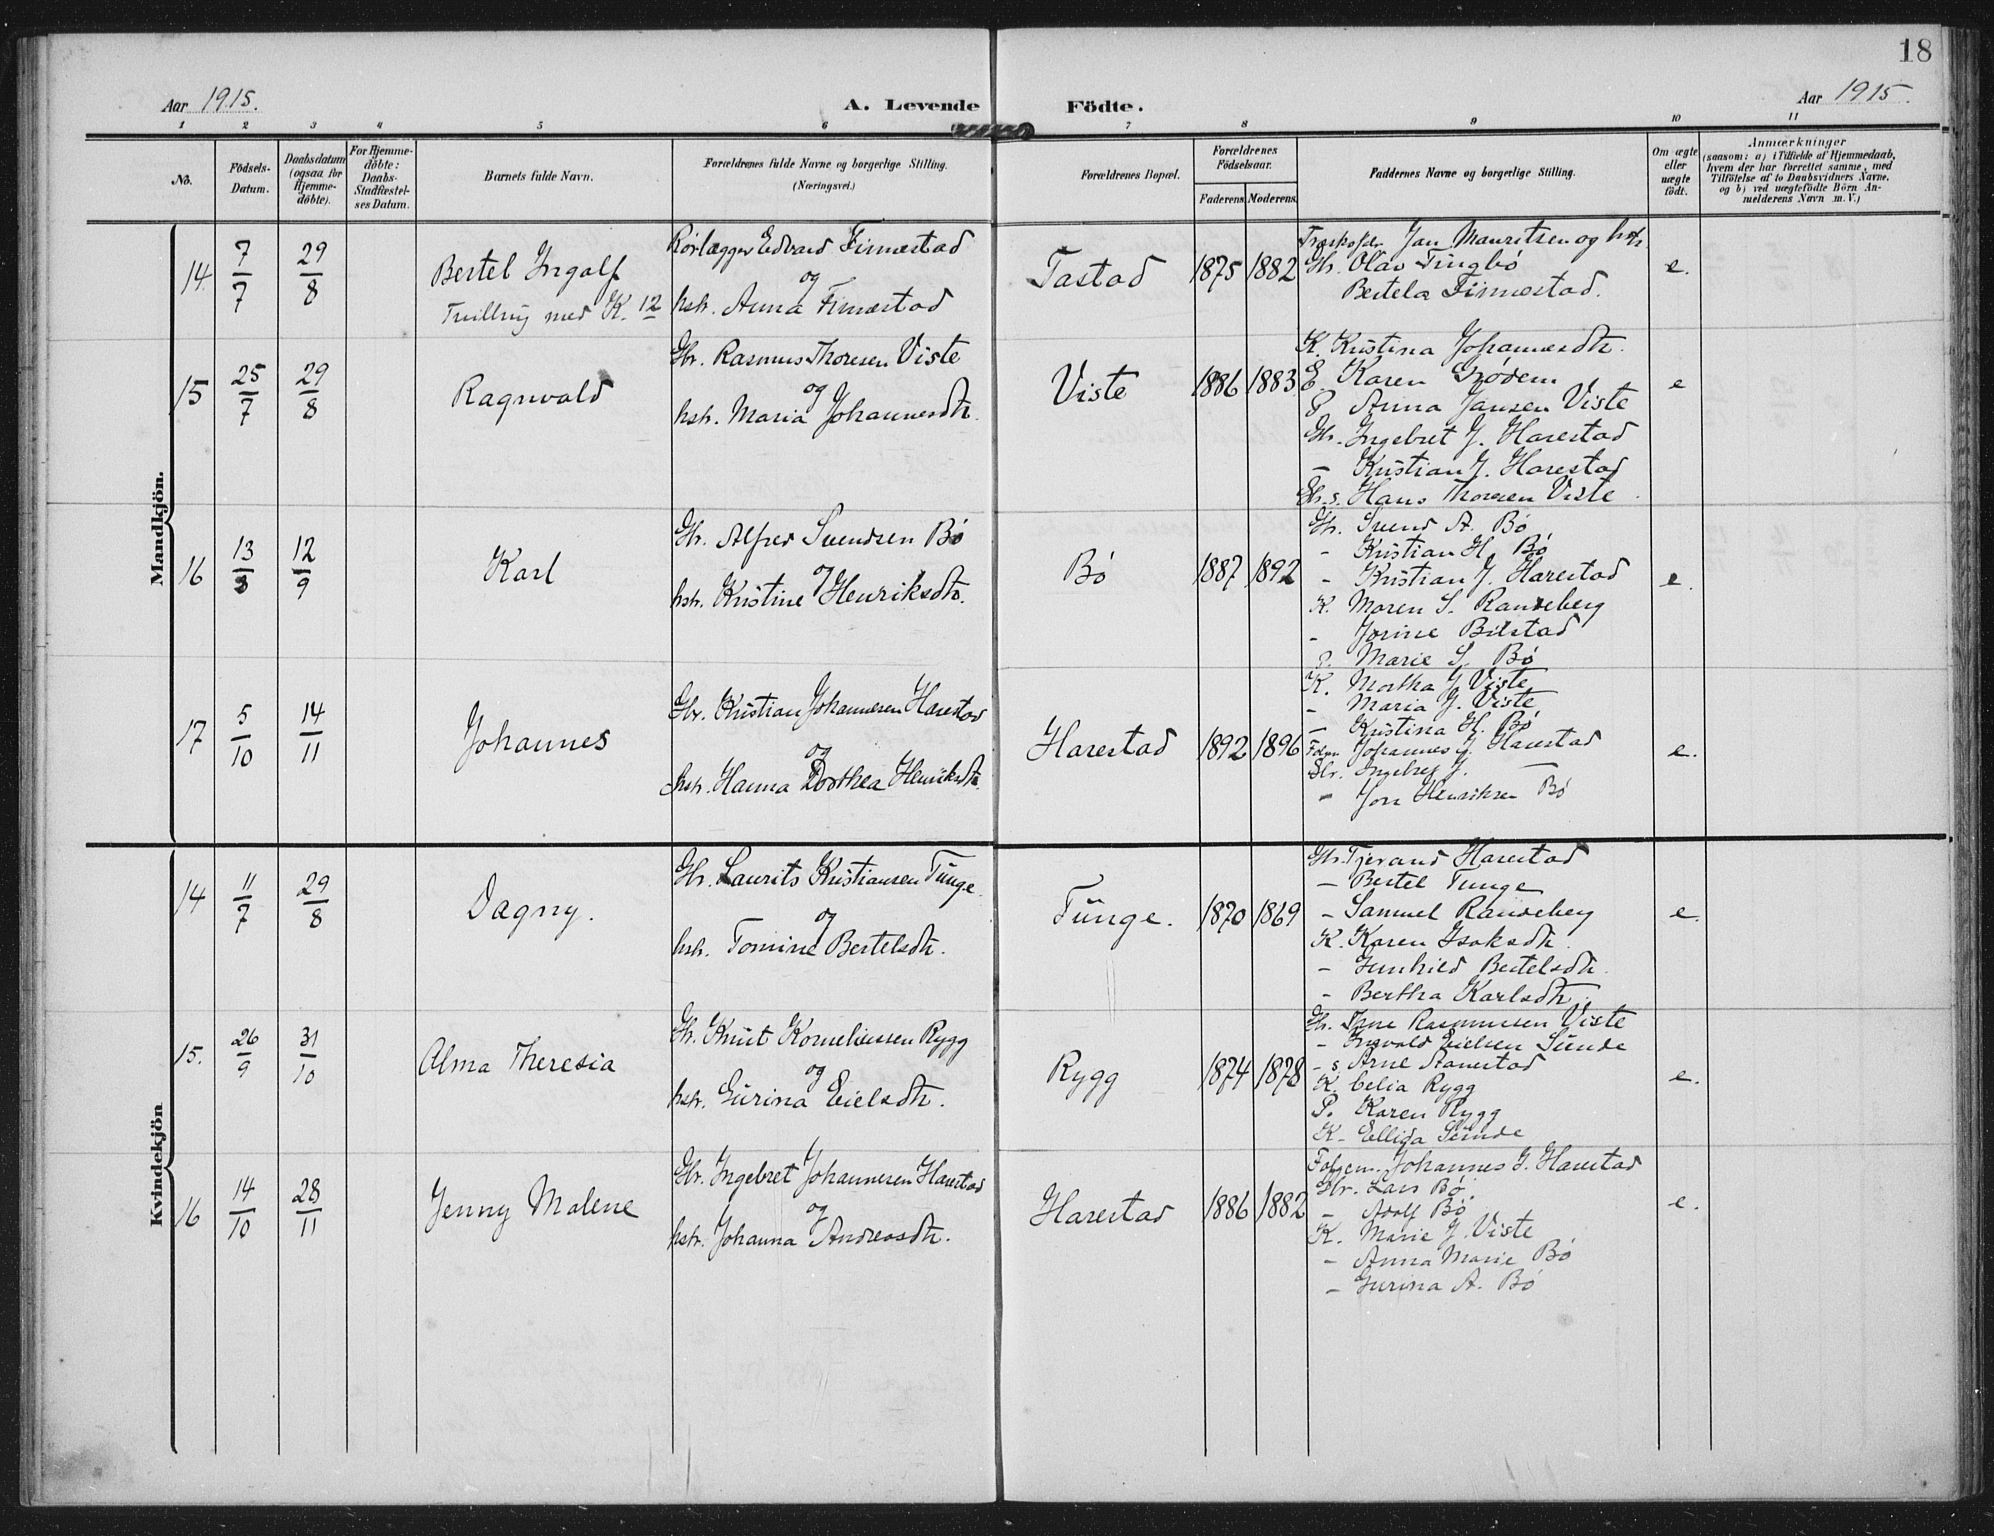 18
Aar 1915.
A. Levende Födte.
Aar 1915.
1 2 3 4 5 6 7 8 9 10 11
No.
Födsels-Datum.
Daabsdatum (ogsaa for Hjemme-döbte).
For Hjemme-döbte: Daabs-Stadfæstel-ses Datum.
Barnets fulde Navn.
Forældrenes fulde Navne og borgerlige Stilling.
(Næringsvei.)
Forældrenes Bopæl.
Forældrenes Födselsaar.
Faderens. Moderens.
Faddernes Navne og borgerlige Stilling.
Om ægte eller uægte födt.
Anmærkninger
(saasom: a) i Tilfælde af Hjemmedaab,
hvem der har forrettet samme, med
Tilföielse af to Daabsvidners Navne.
og b) ved uægtefödte Börn An-
melderens Navn m. V.)
Mandkjön.
14 7/7 29/8 Bertel Ingolf
Tvilling med K. 12
Rørlægger Edvard Finnestad
og
hstr. Anna Finnestad
Tastad 1875 1882
Jan Mauritsen og hstr
Gbr. Olav Tingbø
Bertela Finnestad.
e.
15 25/7 29/8 Ragnvald
Gbr. Rasmus Thoresen Viste
og
hstr. Maria Johannesdtr.
Viste 1886 1883
K. Kristina Johannesdtr.
E. Karen Grødem
P. Anna Jansen Viste
Gbr. Ingebret J. Harestad
– Kristian J. Harestad
Gbr.s. Hans Thoresen Viste
e
16 13/8 12/9 Karl
Gbr. Alfred Svendsen Bø
og
hstr. Kristine Henriksdtr.
Bø 1887 1892
Gbr. Svend A. Bø
- Kristian H. Bø
- Kristian J. Harestad
K. Maren S. Randeberg
- Jorine Bøstad
P. Marie S. Bø
e.
17 5/10 14/11 Johannes
Gbr. Kristian Johannesen Harestad
og
hstr. Hanna Dorthea Henriksdtr.
Harestad 1892 1896
K. Martha J. Viste
– Maria J. Viste
– Kristina H. Bø
Johannes J. Harestad
Gbr. Ingebret J. —
– Jon Henriksen Bø
e.
Kvindekjön
14 11/7 29/8 Dagny.
Gbr. Laurits Kristiansen Tunge
og
hstr. Tomine Bertelsdtr.
Tunge. 1870 1869
Gbr. Tjerand Harestad
– Bertel Tunge
– Samuel Randeberg
K. Karen Isaksdtr.
– Gunhild Bertelsdtr.
– Bertha Karlsdtr.
e.
15. 26/9 31/10 Alma Theresia
Gbr. Knut Korneliussen Rygg
og
hstr. Gurina Eielsdtr.
Rygg 1874 1878
Gbr. Tore Rasmussen Viste
– Ingvald Eielsen Sunde
- s. Arne Aanestad
K. Celia Rygg
P. Karen Rygg
K- Ellida Sunde
e.
16 14/10 28/11 Jenny Malene
Gbr. Ingebret Johannesen Harestad
og
hstr. Johanna Andreasdtr.
Harestad 1886 1882
Folgem. Johannes J. Harestad
Gbr. Lars Bø.
– Adolf Bø
K. Marie J. Viste
– Anna Marie Bø
– Gurina A. Bø
e.